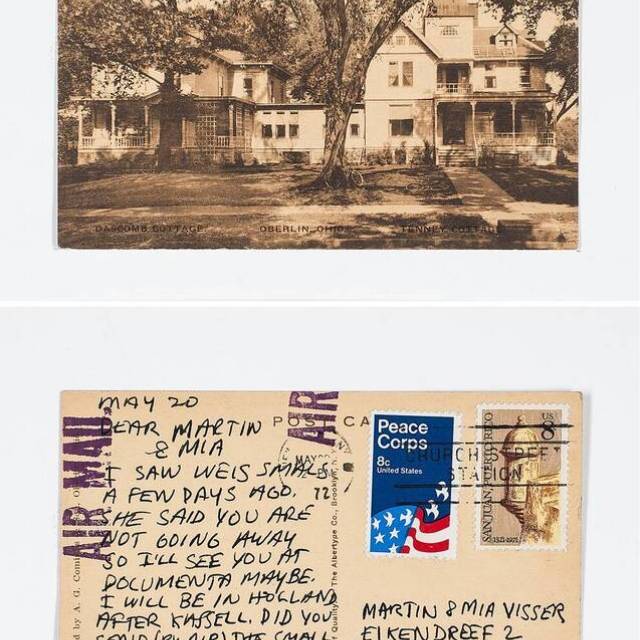 DASCOMB COTTAGE. OBERLIN, OHIO. TENNEY COTTAGE
MAY 20
DEAR MARTIN
& MIA
I SAW WEIS SMALS
A FEW DAYS AGO.
SHE SAID YOU ARE
NOT GOING AWAY
SO I'LL SEE YOU AT
DOCUMENTA MAYBE.
I WILL BE IN HOLLAND
AFTER KASSELL. DID YOU
SEND (BY AIR) THE SMALL
AIR MAIL
AIR
POST CA
MAY
72
CHURCH STREET
STATION
Peace
Corps
8c
United States
US
8
SAN JUAN, PUERTO RICO
1521-1971
d by A. G. Comi
of Quality The Albertype Co., Brooklyn, N. Y.
MARTIN & MIA VISSER
EIKENDREEF 2